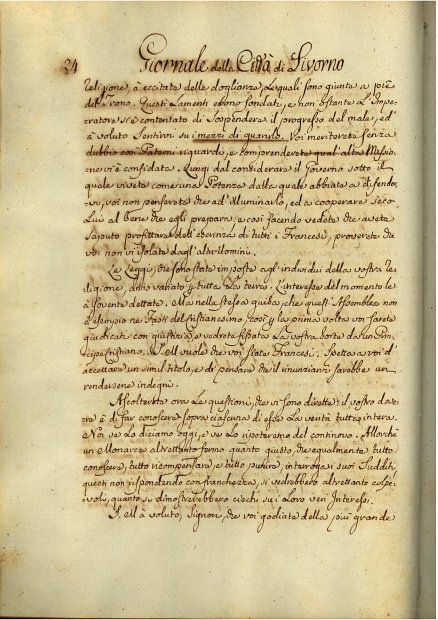 24 Giornale della Città di Livorno
religione, à eccitate delle doglianze, le quali sono giunte a piè
del Trono. Questi Lamenti erono fondati, e non ostante L'Impe-
ratore si è contentato di Sospendere il progresso del male, ed
à voluto Sentirvi su i mezzi di guarirlo. Voi meriterete senza
dubbio così Paterni riguardi, e comprenderete qual'alta Missio-
ne vi è confidata. Lungi dal considerare il Governo sotto il
quale vivete come una Potenza dalla quale abbiate a difender-
vi, voi non penserete che ad'Illuminarlo, ed a cooperare seco
Lui al bene che egli prepara, e così facendo vedete che avete
saputo profittare dell'esperienza di tutti i Francesi, proverete che
voi non v'isolate dagl'altri Uomini.
Le Leggi, che sono state imposte agl'individui della vostra Re-
ligione, anno variato per tutta La terra. L'interesse del momento le
à sovente dettate. Ma nella stessa guisa, che quest'Assemblea non
à esempio ne' Fasti del Cristianesimo, così per la prima volta voi sarete
giudicati con giustizia, e vedrete fissata La vostra sorte da un Prin-
cipe Cristiano. S. M. vuole che voi siate Francesi. Spetta a voi d'
accettare un simil titolo, e di pensare che il rinunziarvi sarebbe un
rendersene indegni.
Ascolterete ora Le questioni, che vi sono dirette: il vostro dove-
re è di far conoscere sopra ciascuna di esse La verità tutta intera.
Noi ve lo diciamo oggi, e ve Lo ripeteremo del continovo. Allorchè
un Monarca altrettanto fermo quanto giusto, che egualmente tutto
conoscere, tutto ricompensare, e tutto punire, interroga i suoi Sudditi,
questi non rispondendo con franchezza, si vedrebbero altrettanto colpe-
voli, quanto si dimostrerebbero ciechi su i Loro veri Interessi.
S. M. à voluto, Signori, che voi godiate della più grande